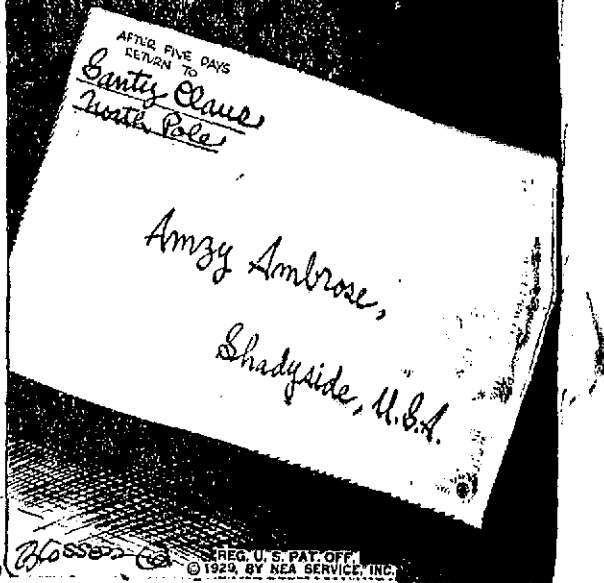 AFTER FIVE DAYS
RETURN TO
Santy Claus
North Pole
Amzy Ambrose,
Shadyside, U.S.A.
Blosser
REG. U. S. PAT. OFF.
© 1929, BY NEA SERVICE, INC.